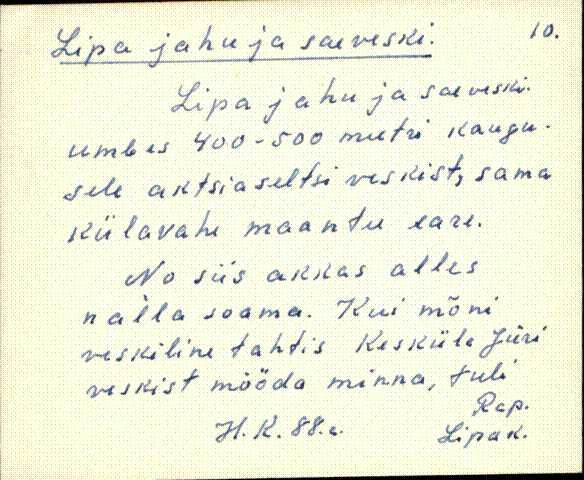 Lipa jahu ja saeveski. 10.
Lipa jahu ja saeveski.
umbes 400-500 meetri kaugu-
sele aktsiaseltsi veskist, sama
külavahe maantee eare.
No siis akkas alles
nalla soama. Kui mõni
veskiline tahtis Kesküla Jüri
veskist mööda minna, tuli
Rap.
H. K. 88. a. Lipa k.